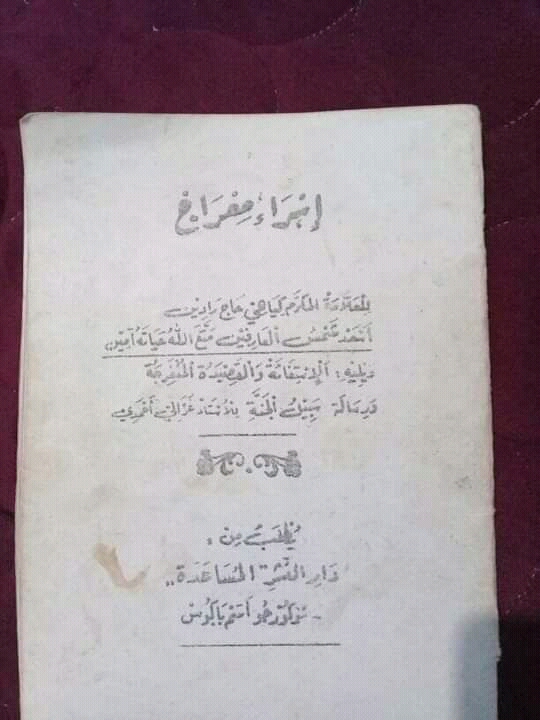 إسْرَاءْ مِعْرَاجْ
للعلامة المكرم كياهي حاج رادين
أسعد شمس العارفين متع الله حياته آمين،،
ويليه: الإستغاثة والقصيدة المنفرجة
ورسالة سبيل الجنة للأستاذ غزالي أحمدي
يُطْلَبُ مِنْ :
دَارِ النَّشْرِ المُسَاعَدَة،،